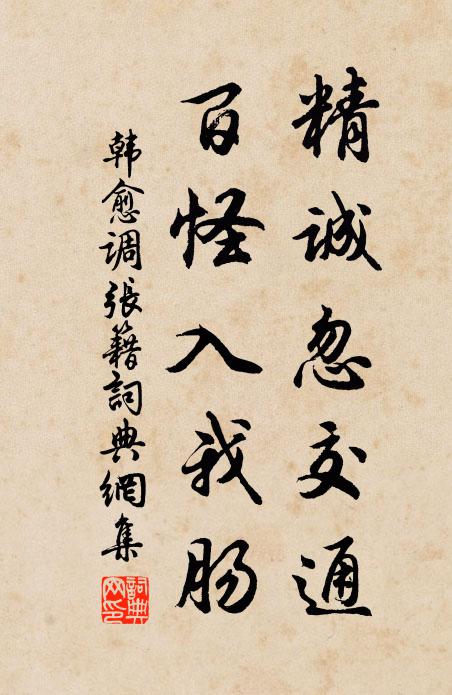 精诚忽交通
百怪入我肠
韩愈调張籍詞典網集
詞典网印